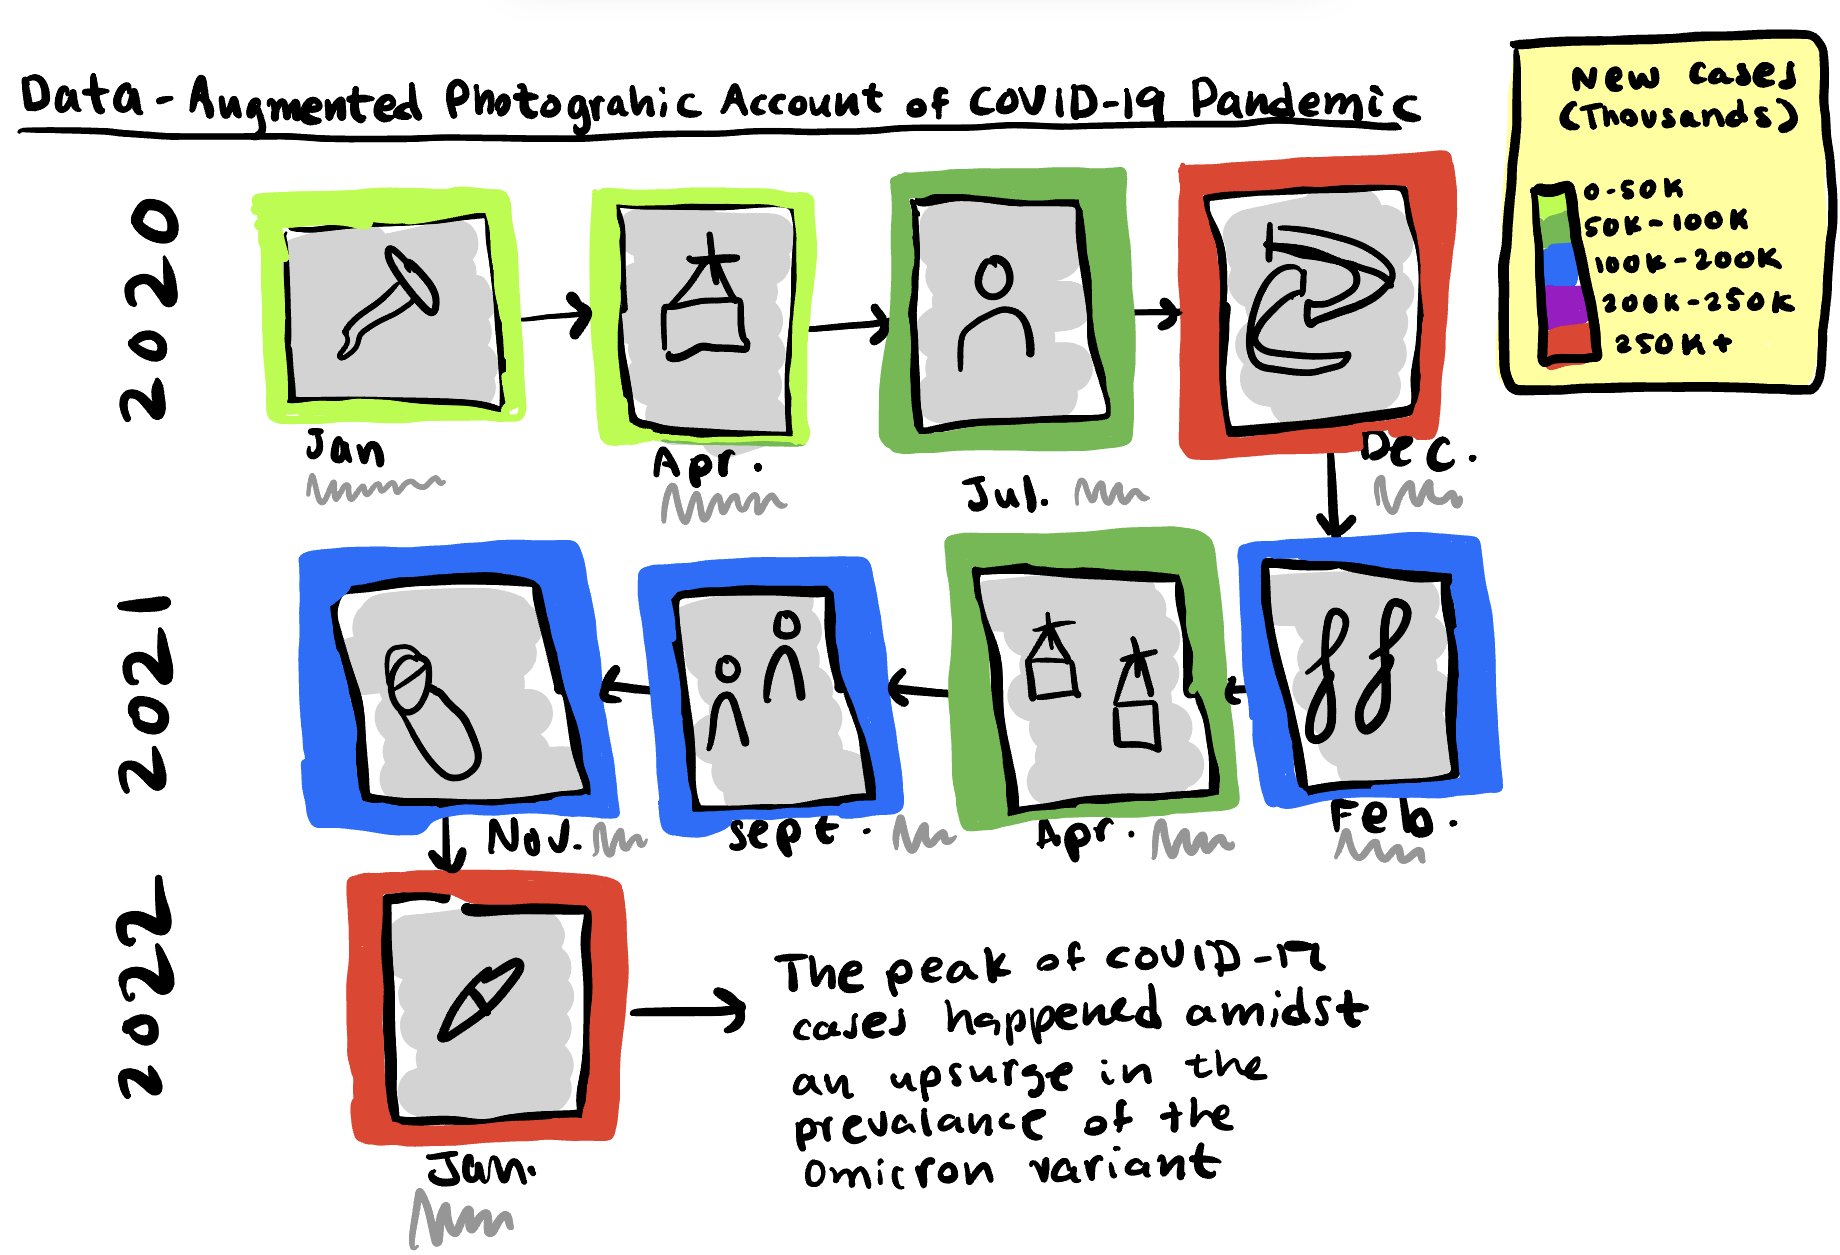 Data-Augmented Photograhic Account of COVID-19 Pandemic
New Cases
(Thousands)
0-50K
50K-100K
100K-200K
200K-250K
250K+
2020
Jan
Apr.
Jul.
Dec.
2021
Nov.
Sept.
Apr.
Feb.
2022
Jan.
The peak of COVID-19
cases happened amidst
an upsurge in the
prevalance of the
Omicron variant